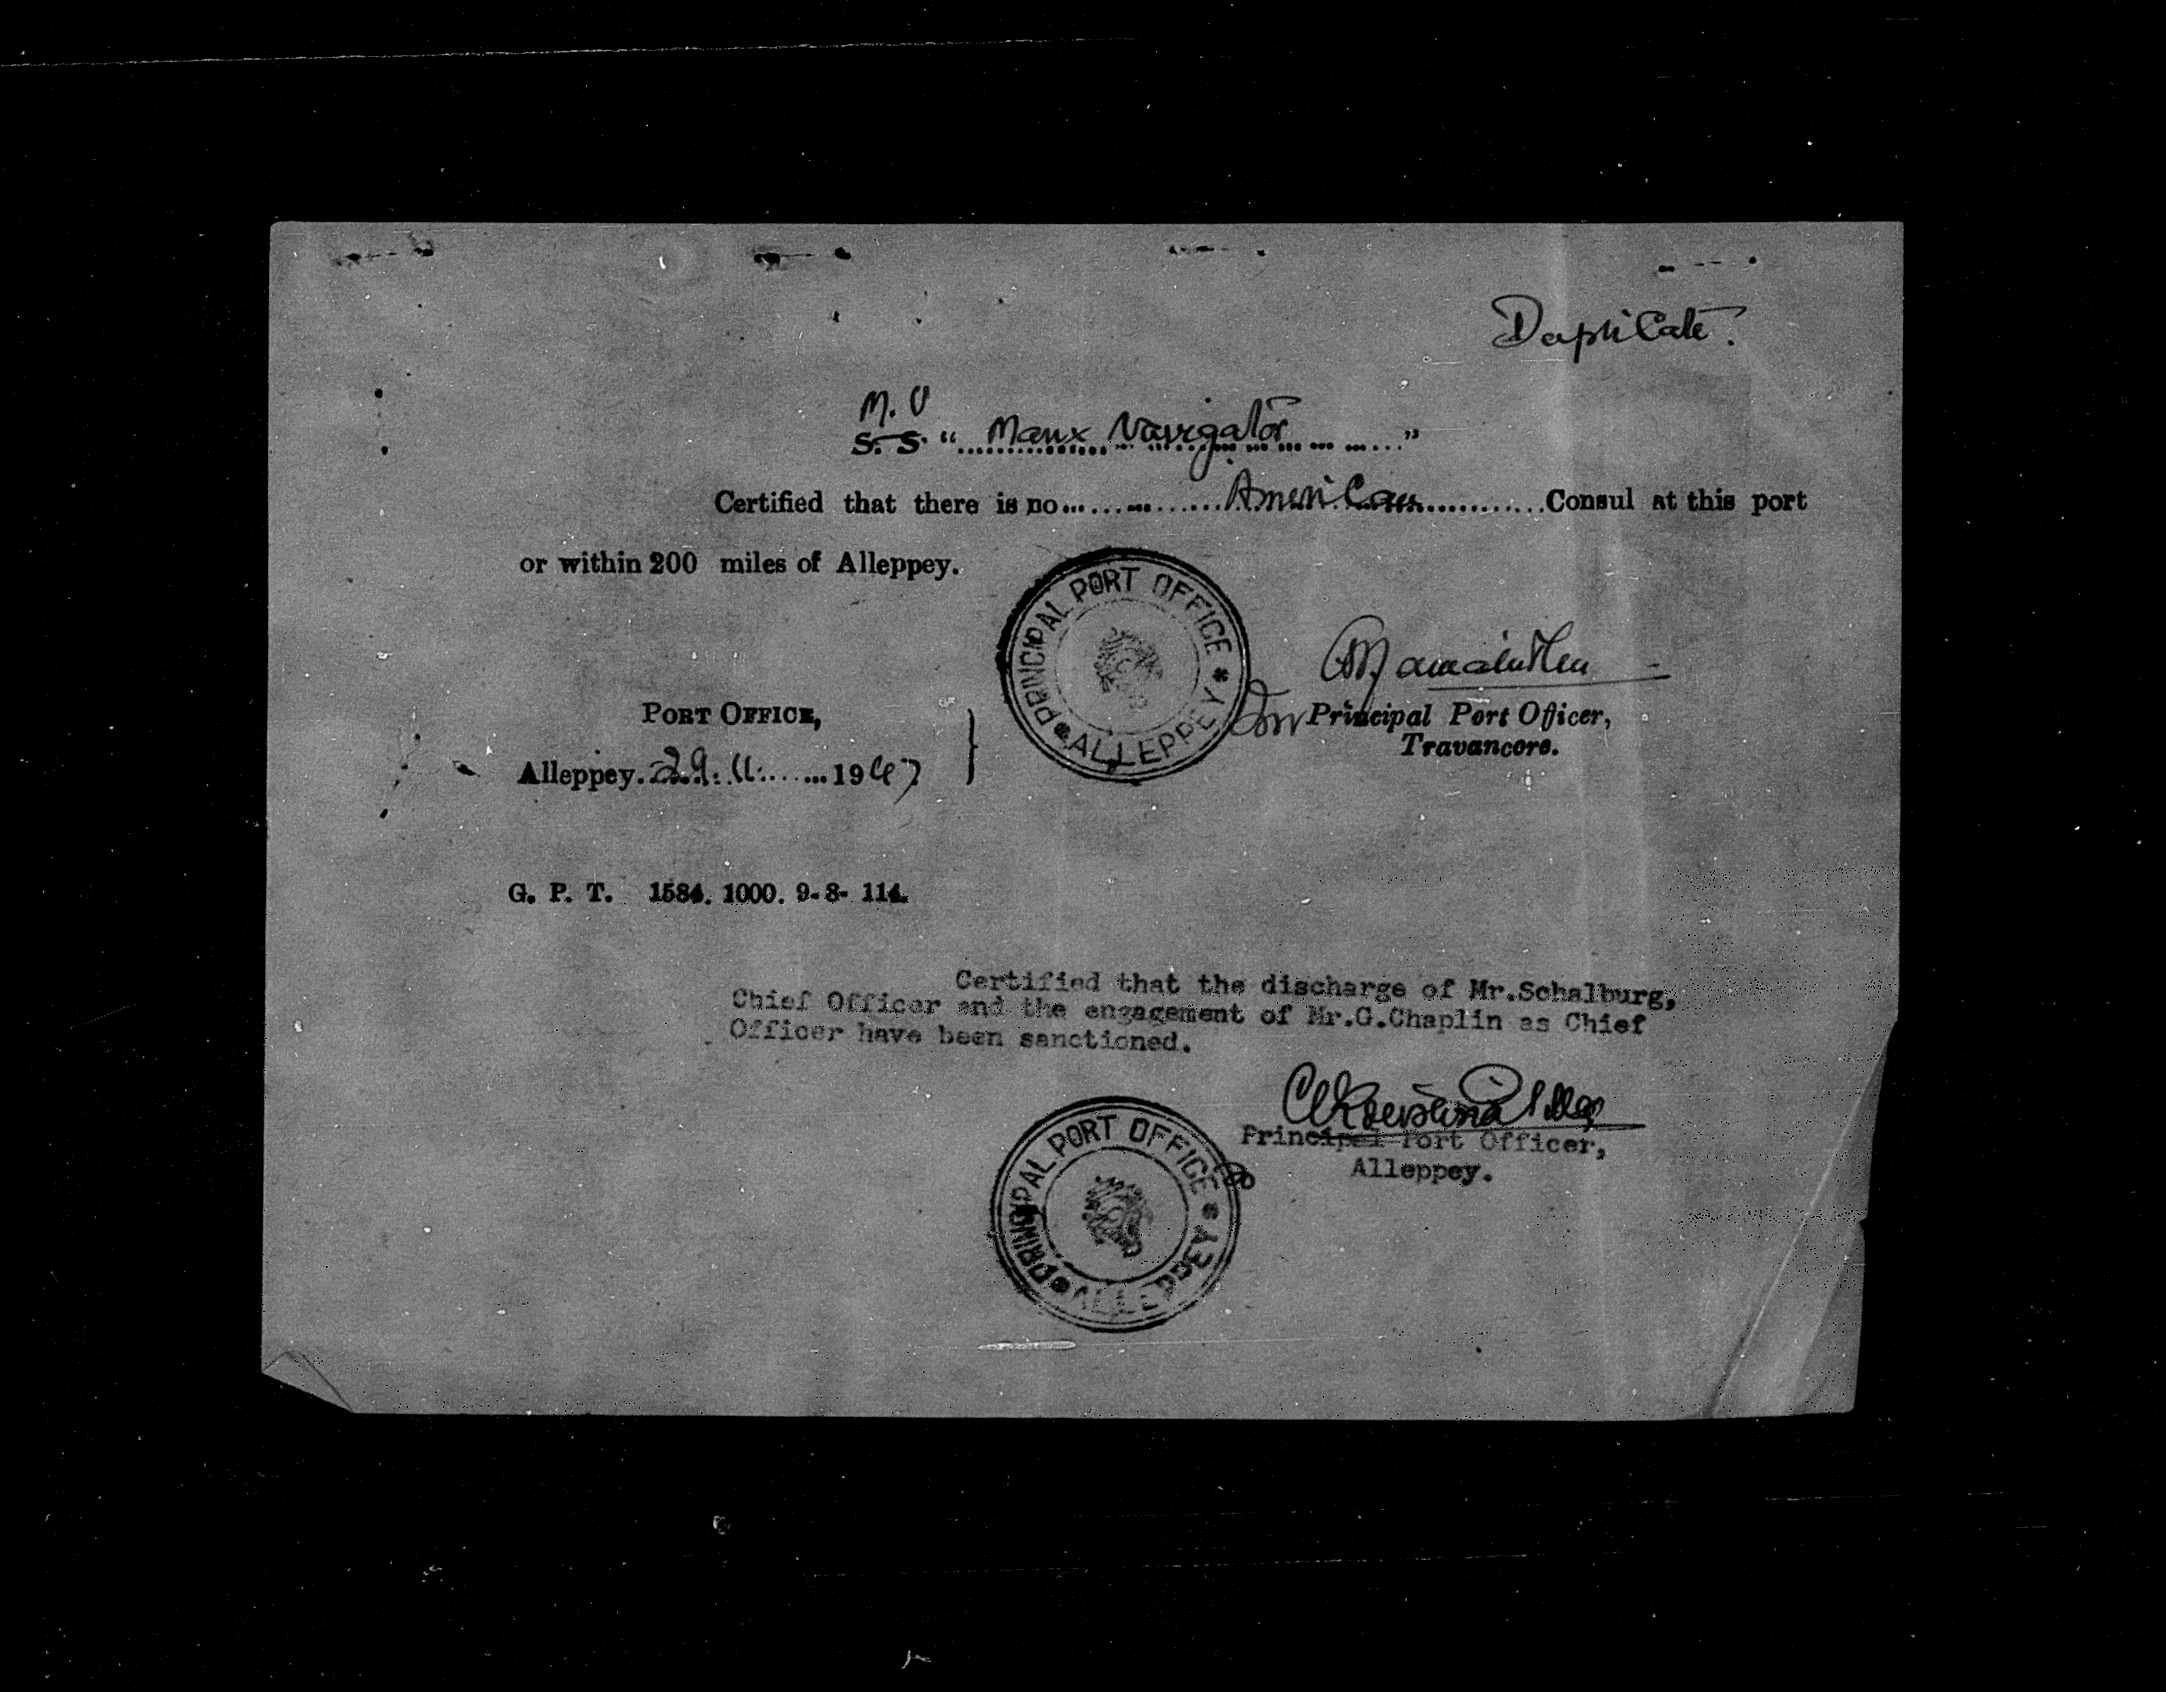 Duplicate.
M. V
S. S. “ Manx Navigator ”
Certified that there is no American Consul at this port
or within 200 miles of Alleppey.
PRINCIPAL PORT OFFICE
* ALLEPPEY *
For Principal Port Officer,
Travancore.
PORT OFFICE,
Alleppey. 29.11. 1947
G. P. T. 1584. 1000. 9-8- 114.
Certified that the discharge of Mr.Schalburg,
Chief Officer and the engagement of Mr.G.Chaplin as Chief
Officer have been sanctioned.
Principal Port Officer,
Alleppey.
PRINCIPAL PORT OFFICE
* ALLEPPEY *